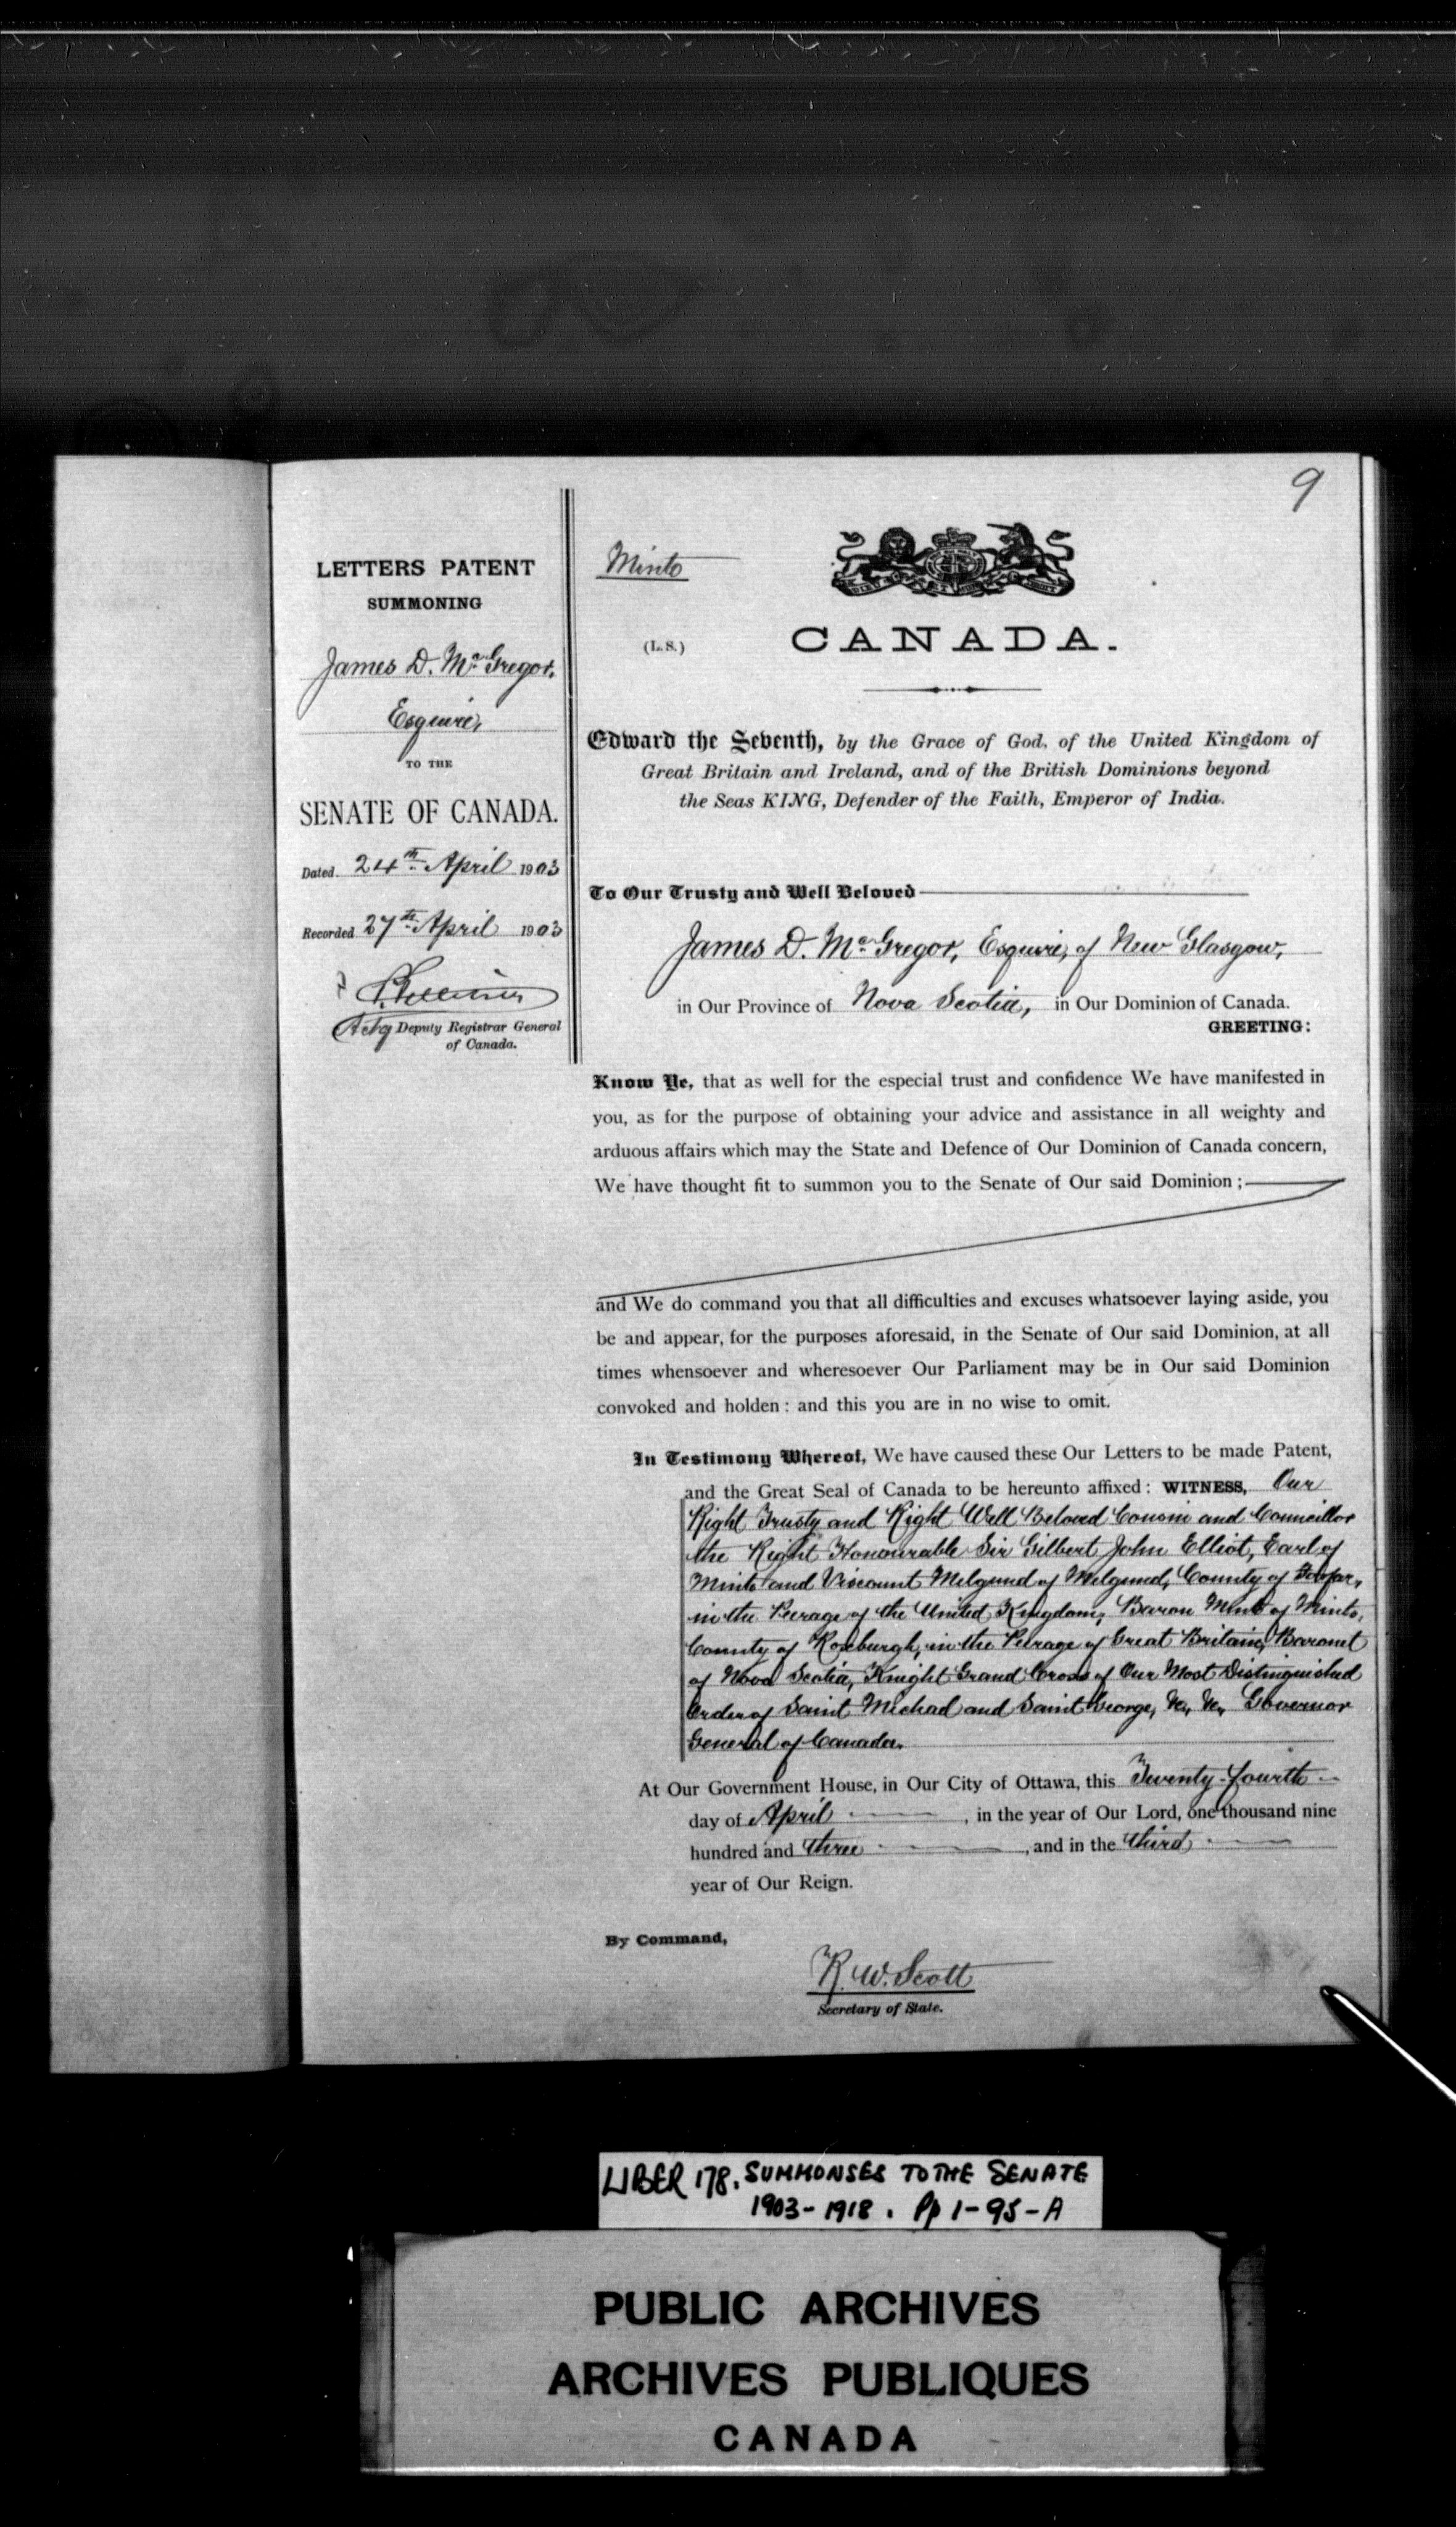 9
LETTERS PATENT
SUMMONING
James D. McGregor,
Esquire,
TO THE
SENATE OF CANADA.
Dated 24th April 1903
Recorded 27th April 1903
Actg Deputy Registrar General
of Canada.
Minto
(L.S.)
CANADA.
Edward the Seventh, by the Grace of God, of the United Kingdom of
Great Britain and Ireland, and of the British Dominions beyond
the Seas KING, Defender of the Faith, Emperor of India.
To Our Trusty and Well Beloved
James D. McGregor, Esquire, of New Glasgow,
in Our Province of Nova Scotia, in Our Dominion of Canada.
GREETING:
Know Ye, that as well for the especial trust and confidence We have manifested in
you, as for the purpose of obtaining your advice and assistance in all weighty and
arduous affairs which may the State and Defence of Our Dominion of Canada concern,
We have thought fit to summon you to the Senate of Our said Dominion;
and We do command you that all difficulties and excuses whatsoever laying aside, you
be and appear, for the purposes aforesaid, in the Senate of Our said Dominion, at all
times whensoever and wheresoever Our Parliament may be in Our said Dominion
convoked and holden: and this you are in no wise to omit.
In Testimony Whereof, We have caused these Our Letters to be made Patent,
and the Great Seal of Canada to be hereunto affixed: WITNESS, Our
Right Trusty and Right Well Beloved Cousin and Councillor
the Right Honourable Sir Gilbert John Elliot, Earl of
Minto and Viscount Melgund of Melgund, County of Forfar,
in the Peerage of the United Kingdom, Baron Minto of Minto,
County of Roxburgh, in the Peerage of Great Britain, Baronet
of Nova Scotia, Knight Grand Cross of Our Most Distinguished
Order of Saint Michael and Saint George, &c., &c., Governor
General of Canada.
At Our Government House, in Our City of Ottawa, this Twenty-fourth
day of April, in the year of Our Lord, one thousand nine
hundred and three, and in the third
year of Our Reign.
By Command,
R. W. Scott
Secretary of State.
LIBER 178. SUMMONSES TO THE SENATE
1903-1918. Pp 1-95-A
PUBLIC ARCHIVES
ARCHIVES PUBLIQUES
CANADA